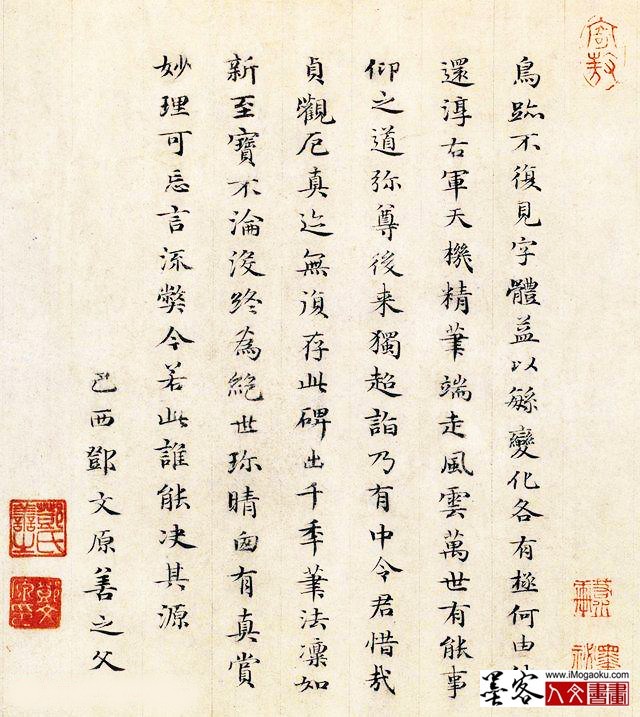 鳥跡不復見字體益以緐變化各有極何由
還淳右軍天機精筆端走風雲萬世有能事
仰之道弥尊後来獨超詣乃有中令君惜哉
貞觀厄真迹無復存此碑出千季筆法凛如
新至寶不淪没終為絶世珎晴囱有真賞
妙理可忘言流弊今若此誰能决其源
己酉鄧文原善之父
鄧氏善之
鄧文原印
墨客
www.iMogaoku.com
人文書畫